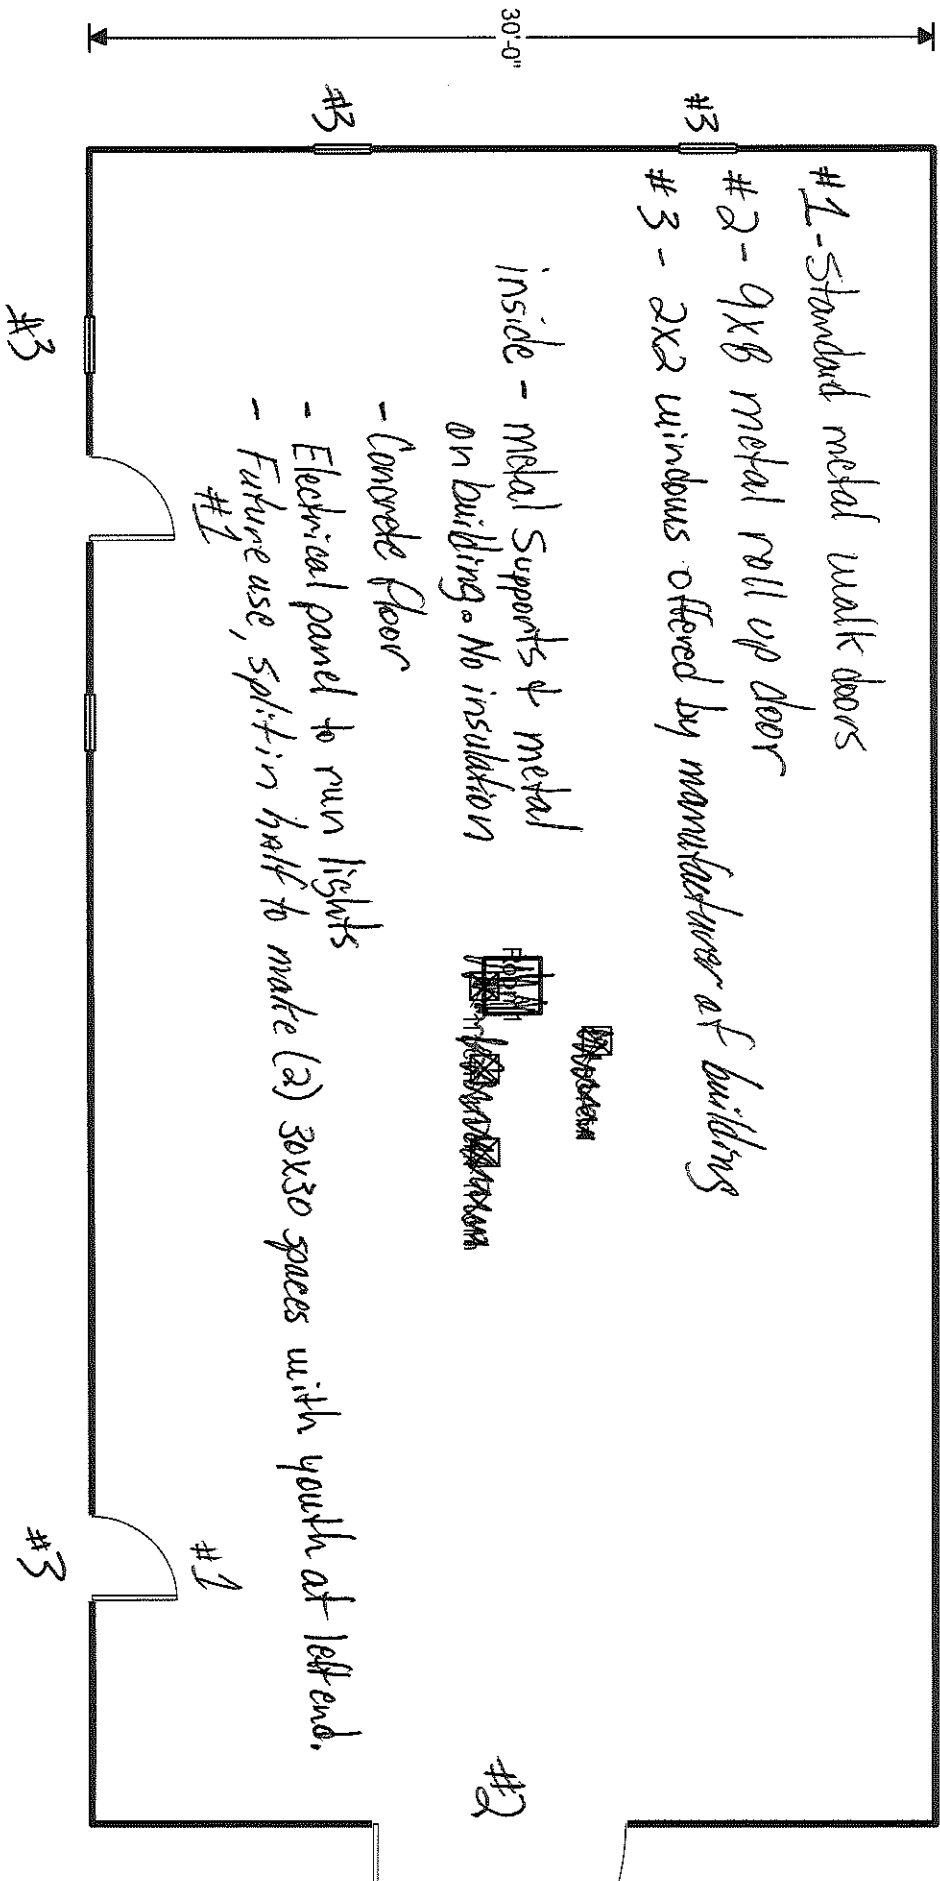 30'-0"
#3
#3
#1-Standard metal walk doors
#2- 9x8 metal roll up door
#3- 2x2 windows offered by manufacturer of building
inside - metal supports & metal
on building. No insulation
- Concrete floor
- Electrical panel to run lights
- Future use, split in half to make (2) 30x30 spaces with youth at left end.
#2
#1
#1
#3
#3